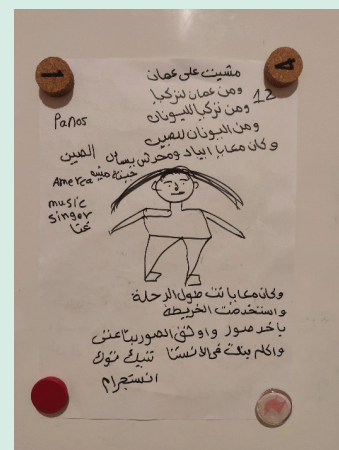 1
4
مشيت على عمان
ومن عمان لتركيا
12
ومن تركيا لليونان
Panos
ومن اليونان للصين
وكان معايا ايباد ومحدش بيسأل الصين
جنيه
America
music
singer
وكان معايا نت طول الرحلة
واستخدمت الخريطة
باخد صور واوثق الصور بتاعتى
واكلم بنات فى الانستا تيك توك
انستجرام